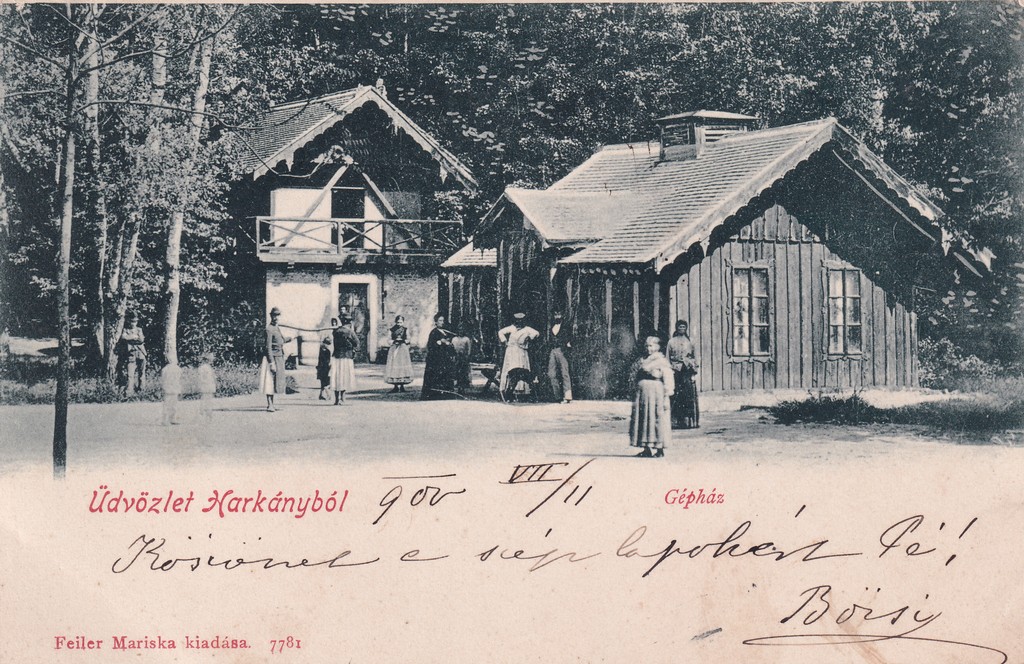 Üdvözlet Harkányból 900 VII/11 Gépház
Köszönet a szép lapokért Pé!
Börsi
Feiler Mariska kiadása. 7781